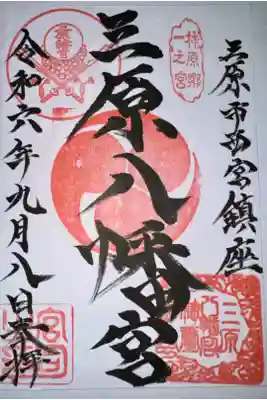 三原市西宮鎮座
三原八幡宮
令和六年九月八日奉拝
御調郡
一之宮
三原
八幡宮